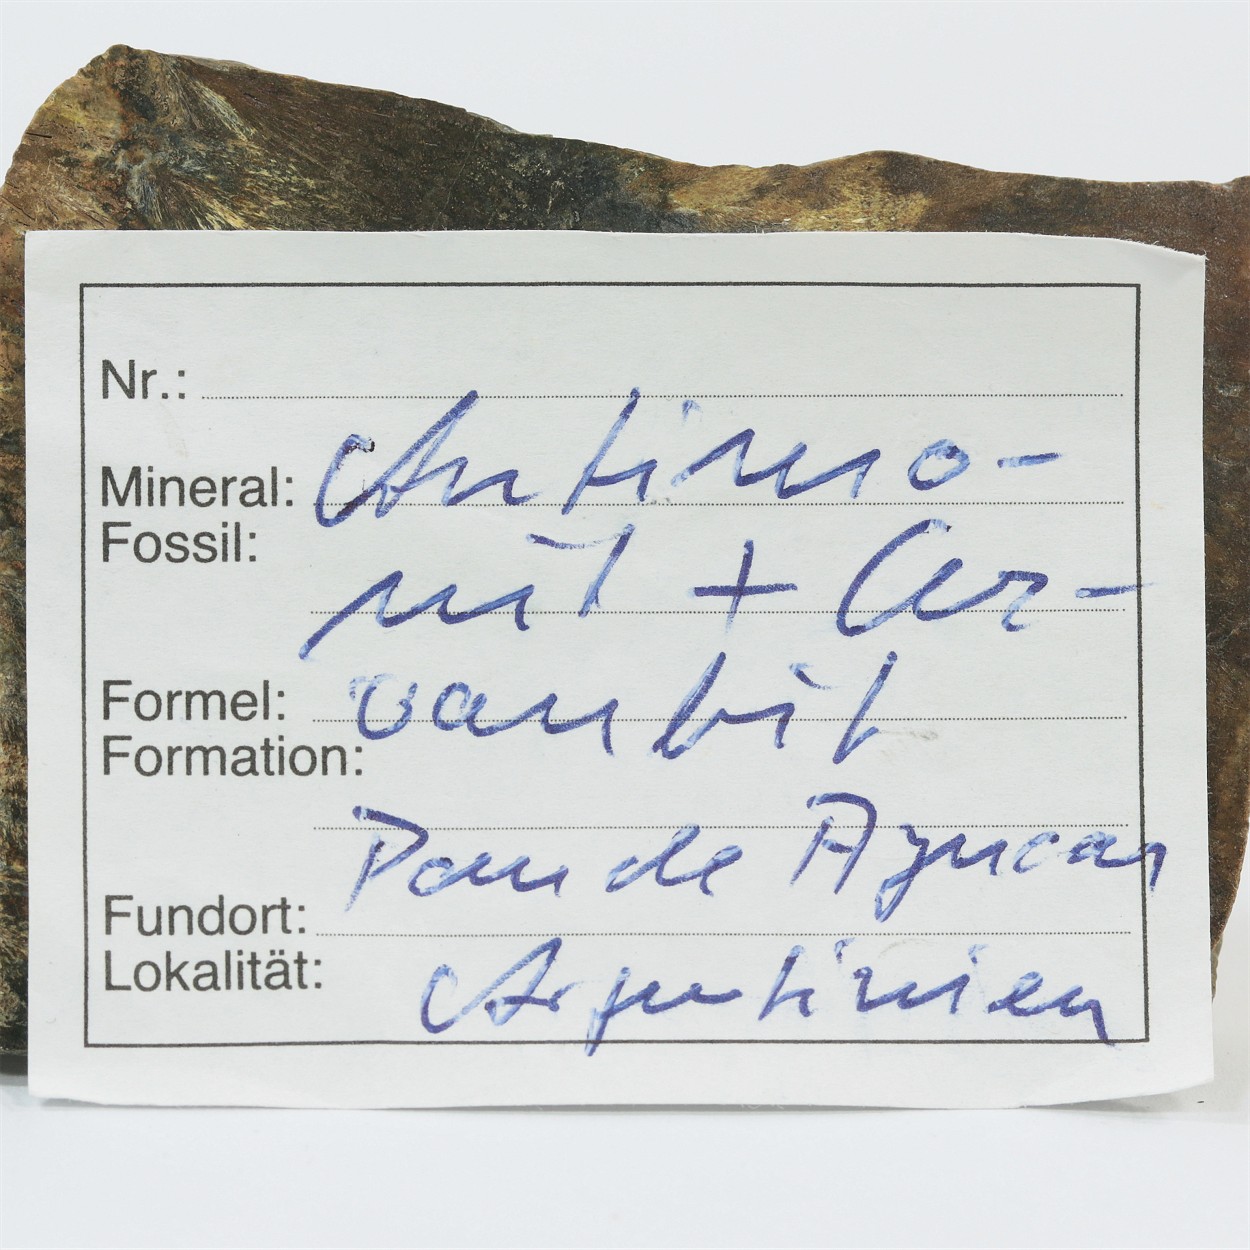 Nr.:
Mineral: Antimo-
Fossil:
nit + Cer-
Formel: vantit
Formation:
Pan de Azucar
Fundort:
Lokalität: Argentinien